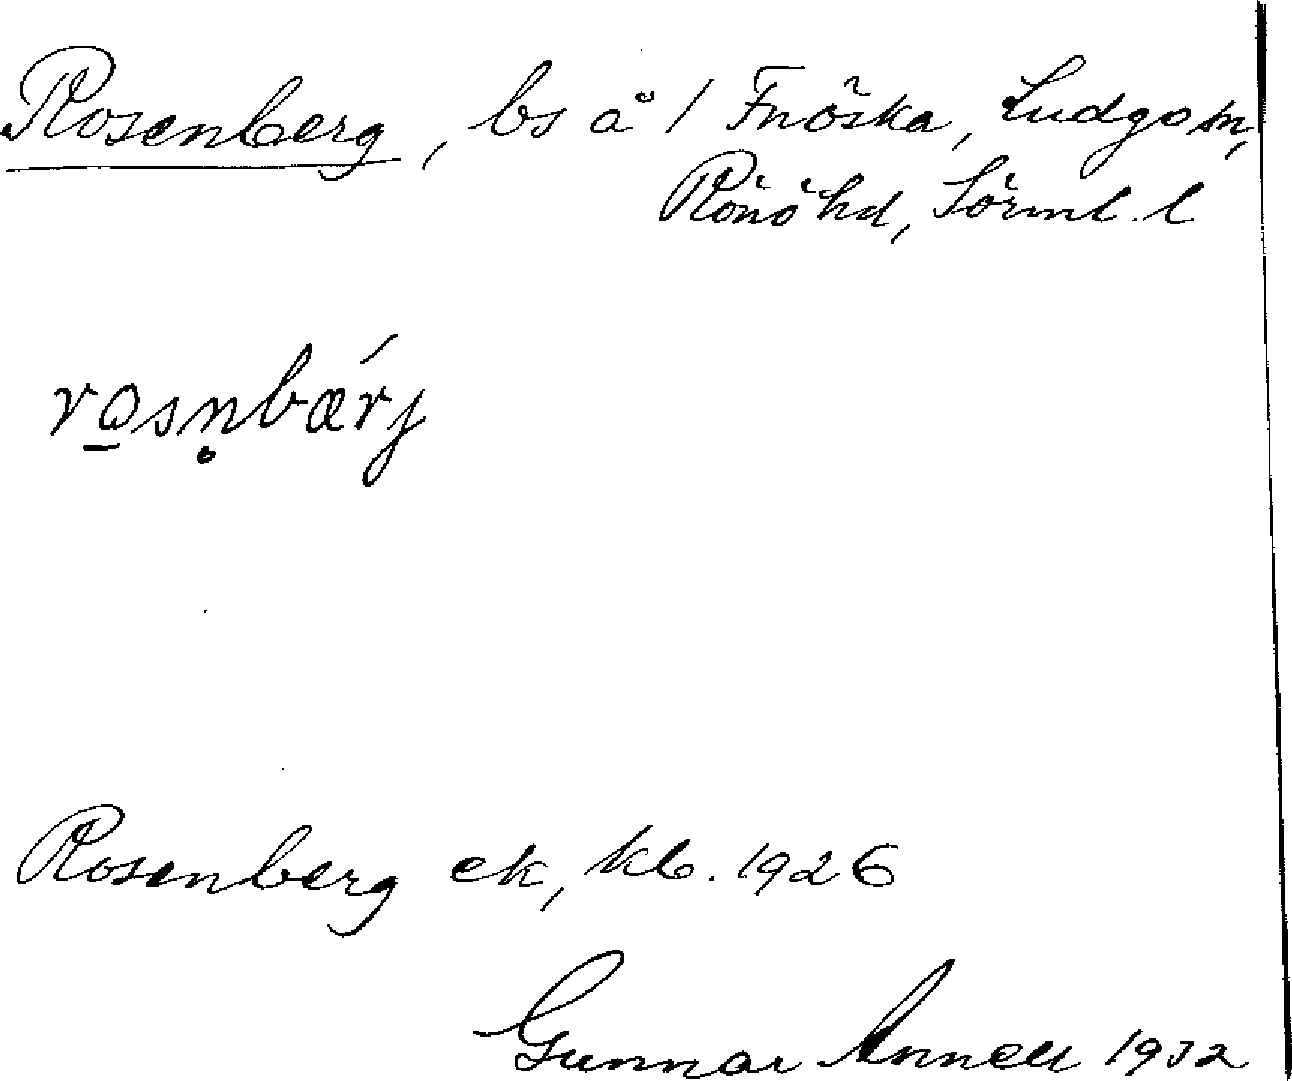 Rosenberg, bs å 1 Fnöska, Ludgo sn,
Rönö hd, Sörml. l
ro̲sn̥bærj́
Rosenberg ek, kb. 1926
Gunnar Annell 1932